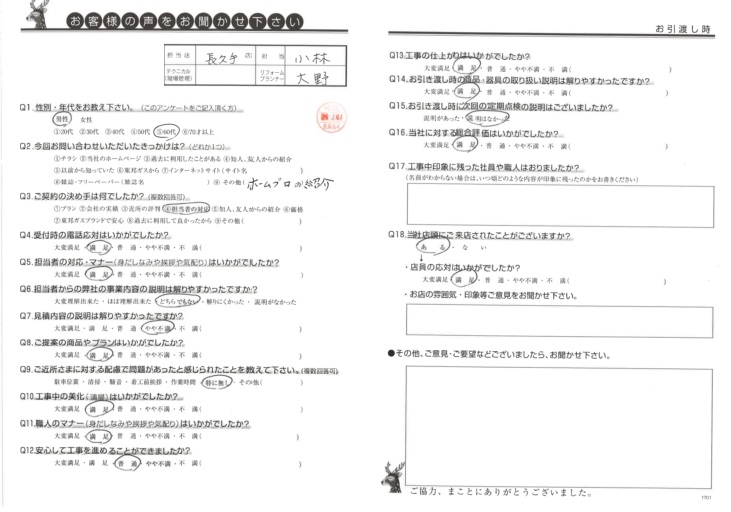 お客様の声をお聞かせ下さい
担当店 長久手店 担当 小林
テクニカル(現場管理) リフォームプランナー 大野
Q1.性別・年代をお教え下さい。(このアンケートをご記入頂く方)
男性 女性
①20代 ②30代 ③40代 ④50代 ⑤60代 ⑥70才以上
Q2.今回お問い合わせいただいたきっかけは?(どれか1つ)
①チラシ ②当社のホームページ ③過去に利用したことがある ④知人、友人からの紹介
⑤以前から知っていた ⑥東邦ガスから ⑦インターネットサイト(サイト名 )
⑧雑誌・フリーペーパー(雑誌名 ) ⑨その他(ホームプロの紹介
Q3.ご契約の決め手は何でしたか?(複数回答可)
①プラン ②会社の実績 ③近所の評判 ④担当者の対応 ⑤知人、友人からの紹介 ⑥価格
⑦東邦ガスブランドで安心 ⑧過去に利用して良かったから ⑨その他( )
Q4.受付時の電話応対はいかがでしたか?
大変満足・満 足・普 通・やや不満・不 満( )
Q5.担当者の対応・マナー(身だしなみや挨拶や気配り)はいかがでしたか?
大変満足・満 足・普 通・やや不満・不 満( )
Q6.担当者からの弊社の事業内容の説明は解りやすかったですか?
大変理解出来た・ほぼ理解出来た・どちらでもない・解りにくかった・説明がなかった
Q7.見積内容の説明は解りやすかったですか?
大変満足・満 足・普 通・やや不満・不 満( )
Q8.ご提案の商品やプランはいかがでしたか?
大変満足・満 足・普 通・やや不満・不 満( )
Q9.ご近所さまに対する配慮で問題があったと感じられたことを教えて下さい。(複数回答可)
駐車位置・清掃・騒音・着工前挨拶・作業時間・特に無し・その他( )
Q10.工事中の美化(清掃)はいかがでしたか?
大変満足・満 足・普 通・やや不満・不 満( )
Q11.職人のマナー(身だしなみや挨拶や気配り)はいかがでしたか?
大変満足・満 足・普 通・やや不満・不 満( )
Q12.安心して工事を進めることができましたか?
大変満足・満 足・普 通・やや不満・不 満( )
お引渡し時
Q13.工事の仕上がりはいかがでしたか?
大変満足・満 足・普 通・やや不満・不 満( )
Q14.お引き渡し時の商品・器具の取り扱い説明は解りやすかったですか?
大変満足・満 足・普 通・やや不満・不 満( )
Q15.お引き渡し時に次回の定期点検の説明はございましたか?
説明があった・説明はなかった
Q16.当社に対する総合評価はいかがでしたか?
大変満足・満 足・普 通・やや不満・不 満( )
Q17.工事中印象に残った社員や職人はおりましたか?
(名前がわからない場合は、いつ頃どのような内容が印象に残ったのかをお書きください)
Q18.当社店頭にご来店されたことがございますか?
あ る・な い
・店員の応対はいかがでしたか?
大変満足・満 足・普 通・やや不満・不 満( )
・お店の雰囲気・印象等ご意見をお聞かせ下さい。
●その他、ご意見・ご要望などございましたら、お聞かせ下さい。
ご協力、まことにありがとうございました。
1701